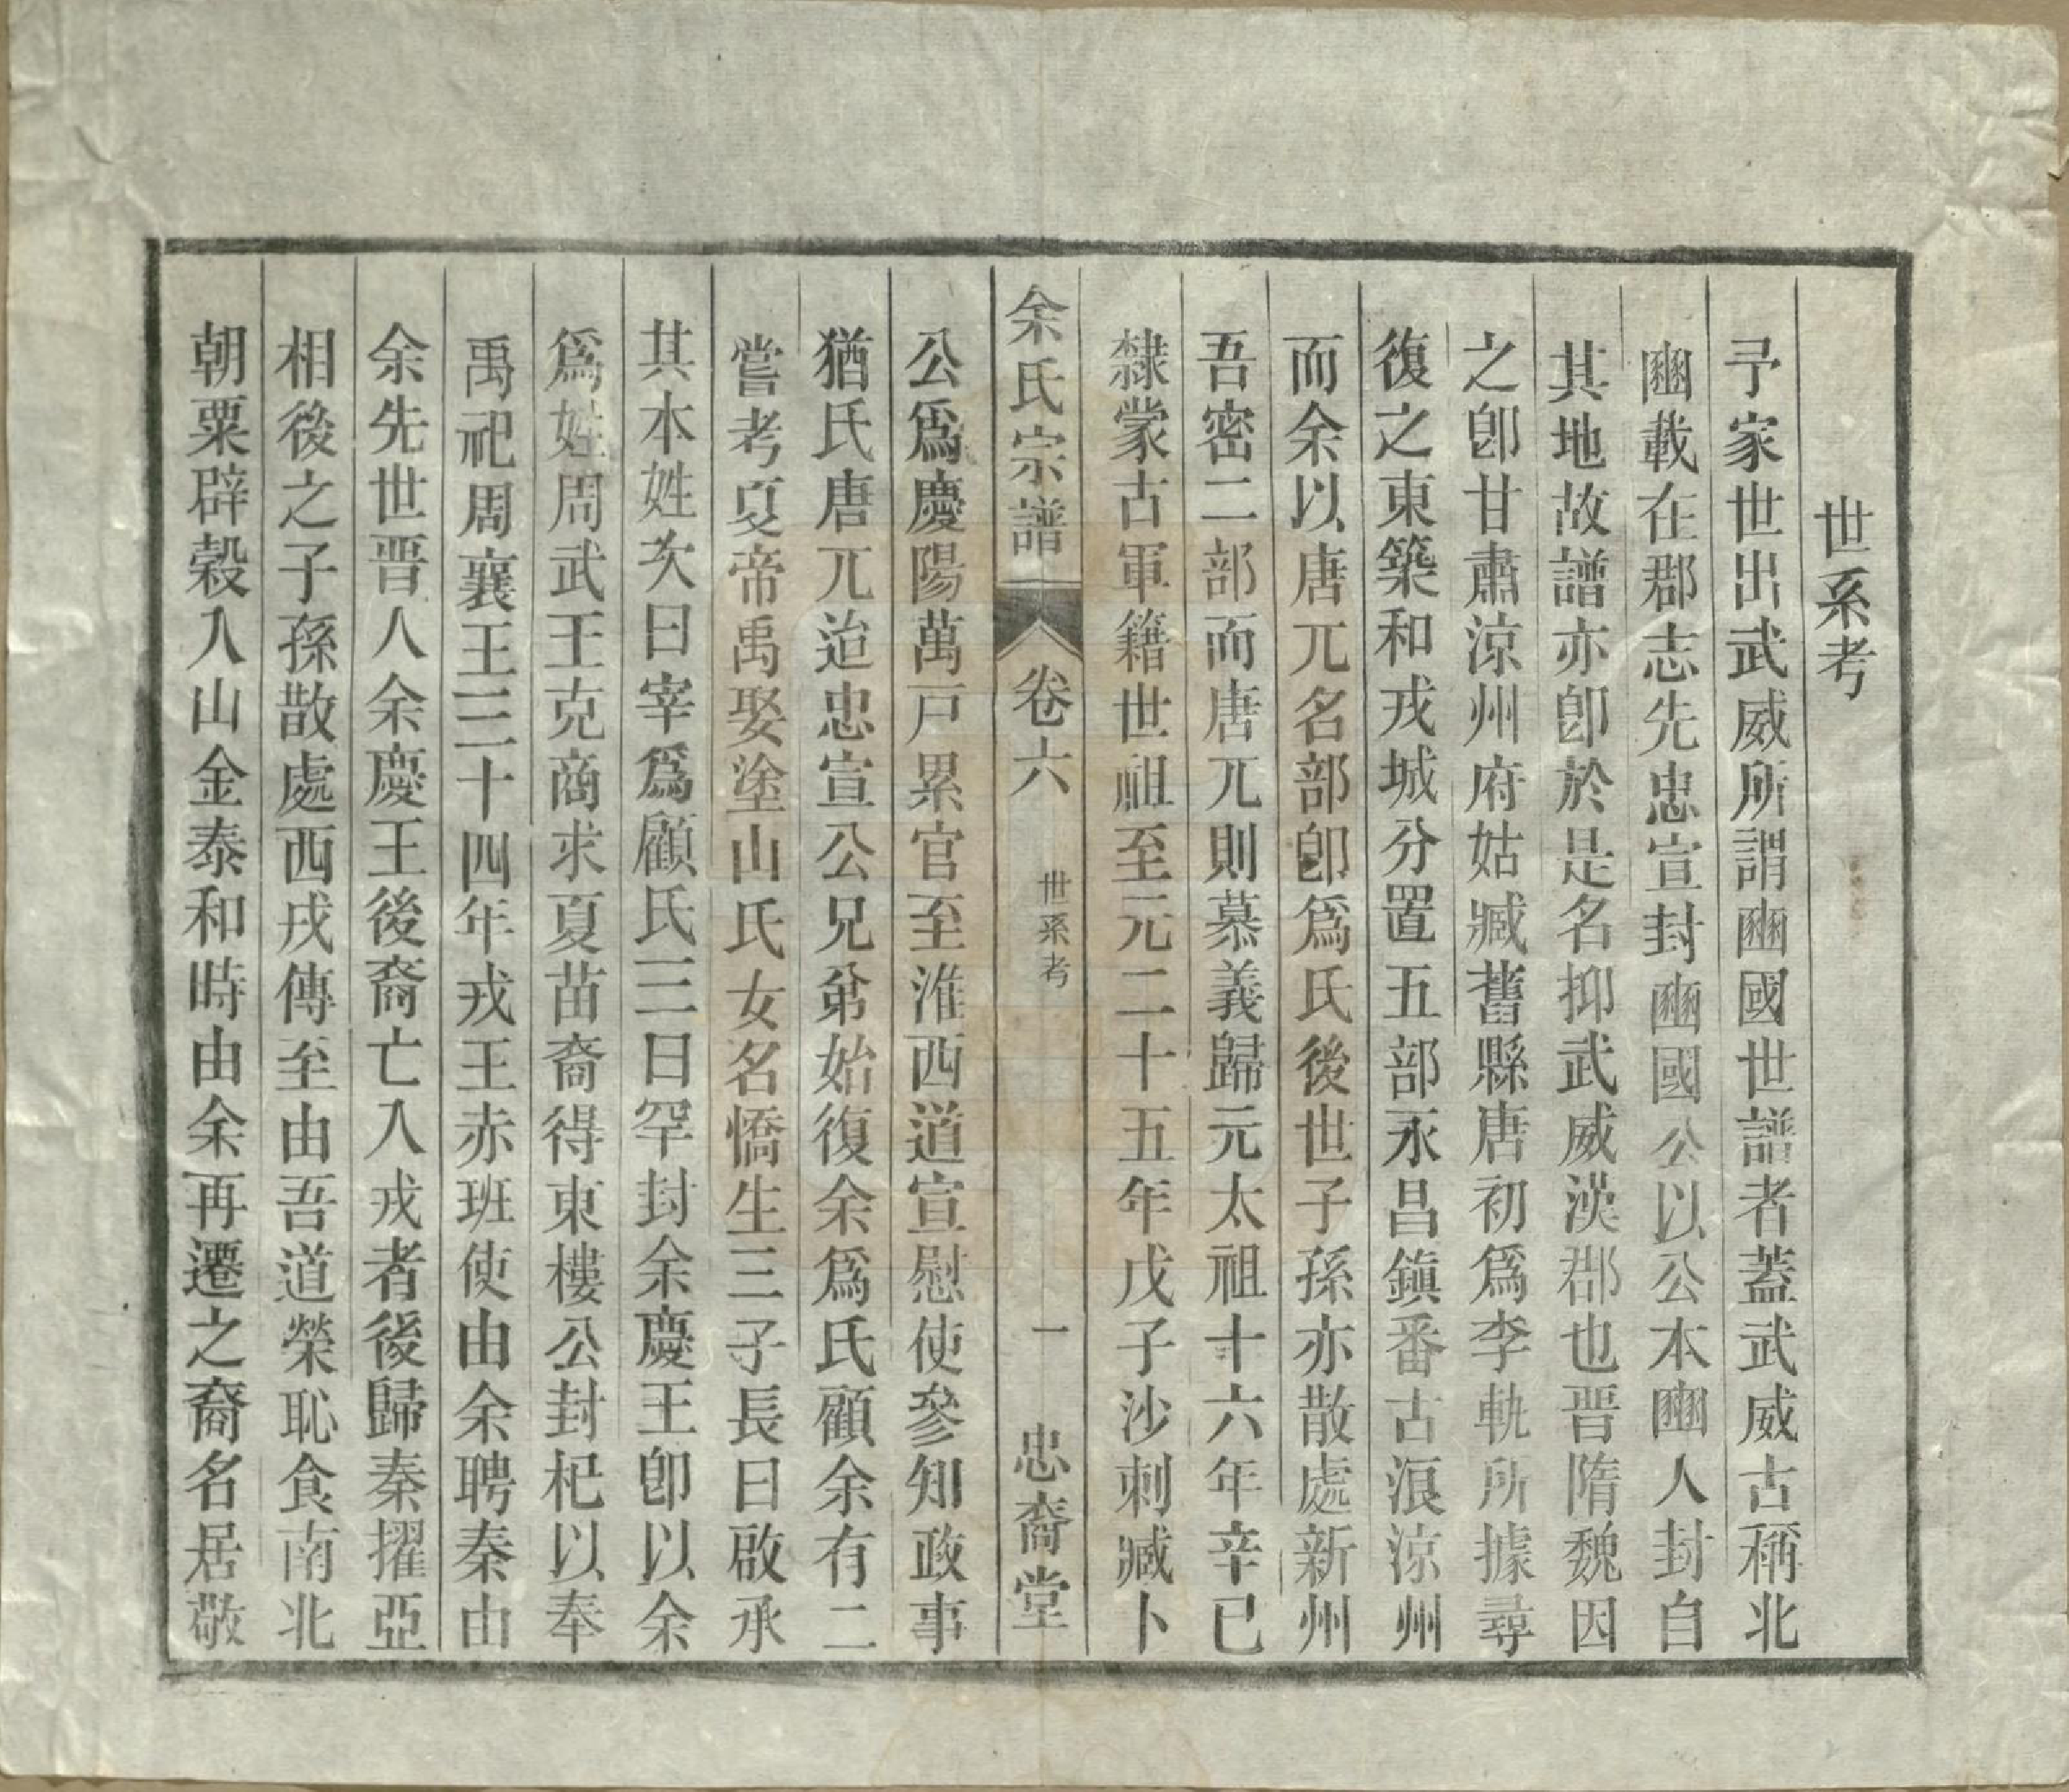 世系考
予家世出武威所謂豳國世譜者蓋武威古稱北
豳載在郡志先忠宣封豳國公以公本豳人封自
其地故譜亦卽於是名抑武威漢郡也晋隋魏因
之卽甘肅涼州府姑臧舊縣唐初爲李軌所據尋
復之東築和戎城分置五部永昌鎭番古浪涼州
而余以唐兀名部卽爲氏後世子孫亦散處新州
吾密二部而唐兀則慕義歸元太祖十六年辛巳
隸蒙古軍籍世祖至元二十五年戊子沙刺臧卜
余氏宗譜 卷六 世系考 一 忠裔堂
公爲慶陽萬戶累官至淮西道宣慰使參知政事
猶氏唐兀迨忠宣公兄弟始復余爲氏顧余有二
嘗考夏帝禹娶塗山氏女名憍生三子長曰啟承
其本姓次曰宰爲顧氏三曰罕封余慶王卽以余
爲姓周武王克商求夏苗裔得東樓公封杞以奉
禹祀周襄王三十四年戎王赤班使由余聘秦由
余先世晋人余慶王後裔亡入戎者後歸秦擢亞
相後之子孫散處西戎傳至由吾道榮恥食南北
朝粟辟穀入山金泰和時由余再遷之裔名居敬